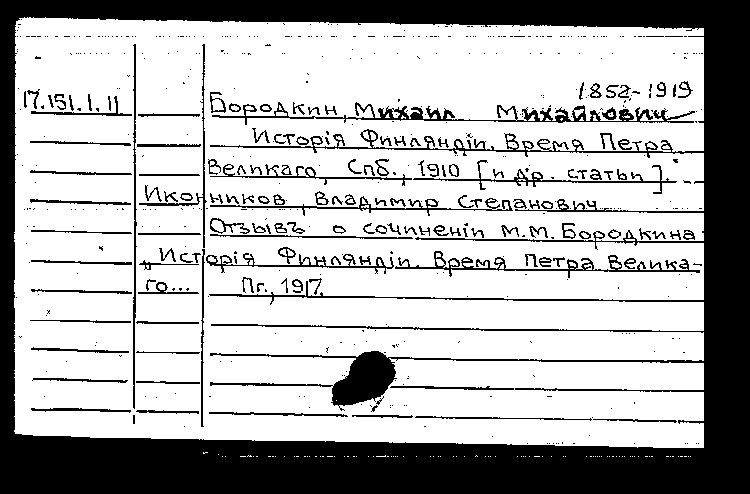 1852-1919
17.151.1.11 Бородкин, Михаил Михайлович
Исторія Финляндіи. Время Петра
Великаго, Спб., 1910 [и др. статьи].
Иконников, Владимир Степанович
Отзывъ о сочиненіи М.М. Бородкина
„Исторія Финляндіи. Время Петра Велика-
го... Пг., 1917.